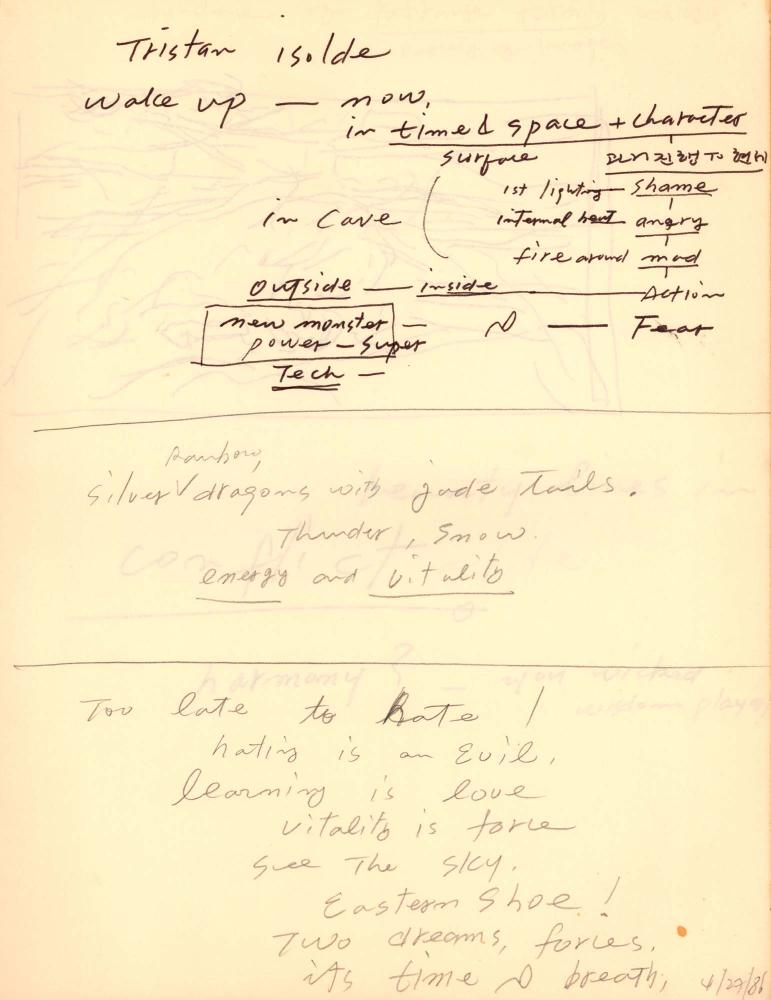 Tristan isolde
wake up — now,
in time & space + character
surface 과거 진행 To 현재
1st lighting — shame
in Cave internal heat angry
fire around mad
outside — inside — Action
new monster — — Fear
power — super
Tech —
Rainbow,
silver V dragons with jade tails.
Thunder, Snow.
energy and vitality
Too late to Hate !
hating is an Evil.
learning is love
vitality is force
see The sky.
Eastern Shoe !
Two dreams, forces.
its time breath,
4/29/86
harmony ? — you wicked
wisdom player